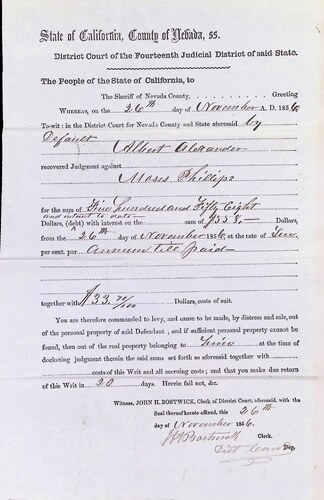 State of California, County of Nevada, ss.
District Court of the Fourteenth Judicial District of said State.
The People of the State of California, to
The Sheriff of Nevada County, Greeting
WHEREAS, on the 26th day of November A. D. 1856
To-wit: in the District Court for Nevada County and State aforesaid by
Default Albert Alexander
recovered Judgment against
Moses Phillips
for the sum of Five hundred and Fifty Eight
and interest to date
Dollars, (debt) with interest on the sum of $558— Dollars,
from the 26th day of November 1856 at the rate of Ten
per cent. per annum till paid
together with $33 70/100 Dollars, costs of suit.
You are therefore commanded to levy, and cause to be made, by distress and sale, out
of the personal property of said Defendant, and if sufficient personal property cannot be
found, then out of the real property belonging to him at the time of
docketing judgment therein the said sums set forth as aforesaid together with
costs of this Writ and all accruing costs; and that you make due
return of this Writ in 20 days. Herein fail not, &c.
Witness, JOHN H. BOSTWICK, Clerk of District Court, aforesaid, with the
Seal thereof hereto affixed, this 26th
day of November 1856.
J H Bostwick Clerk.
Dep